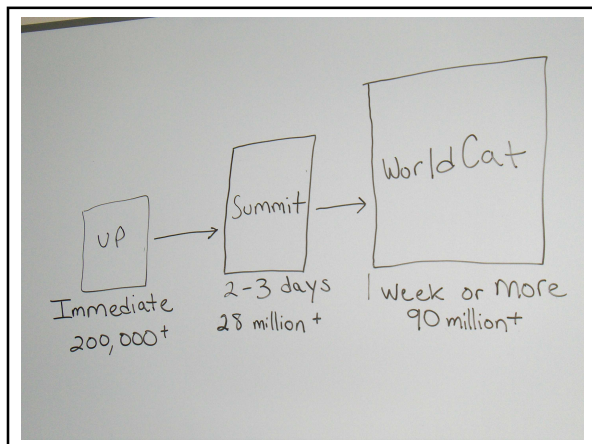 UP
Immediate
200,000+
Summit
2-3 days
28 million+
WorldCat
1 week or more
90 million+